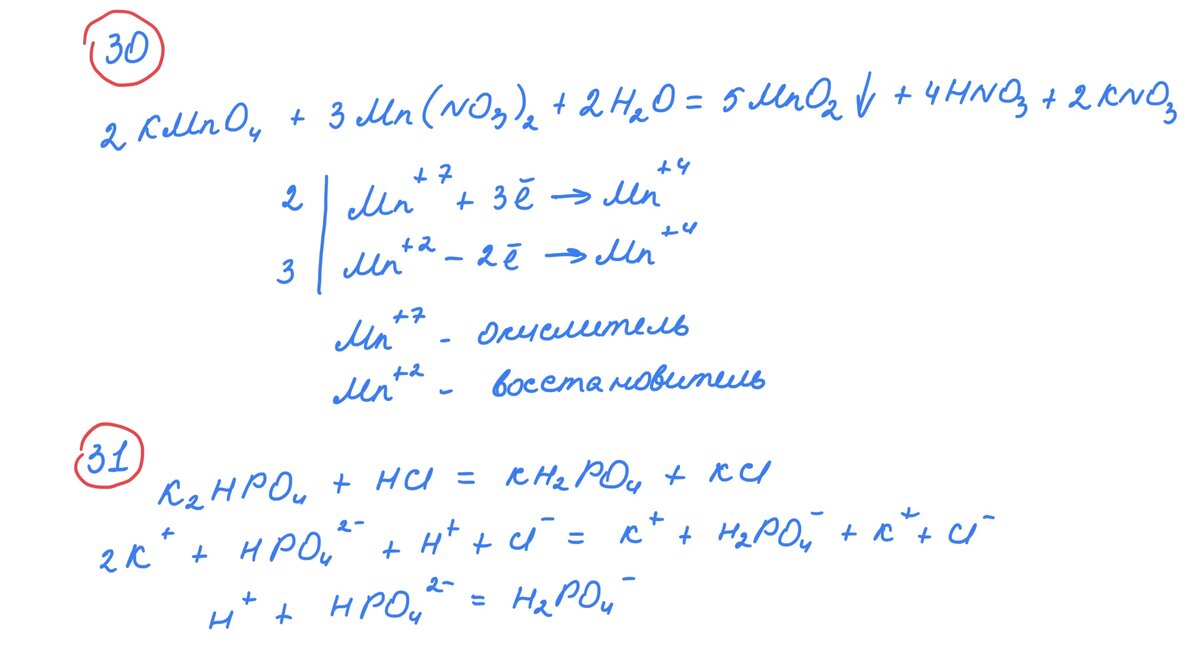 30
2KMnO₄ + 3Mn(NO₃)₂ + 2H₂O = 5MnO₂↓ + 4HNO₃ + 2KNO₃
2 | Mn⁺⁷ + 3ē → Mn⁺⁴
3 | Mn⁺² - 2ē → Mn⁺⁴
Mn⁺⁷ - окислитель
Mn⁺² - восстановитель
31
K₂HPO₄ + HCl = KH₂PO₄ + KCl
2K⁺ + HPO₄²⁻ + H⁺ + Cl⁻ = K⁺ + H₂PO₄⁻ + K⁺ + Cl⁻
H⁺ + HPO₄²⁻ = H₂PO₄⁻